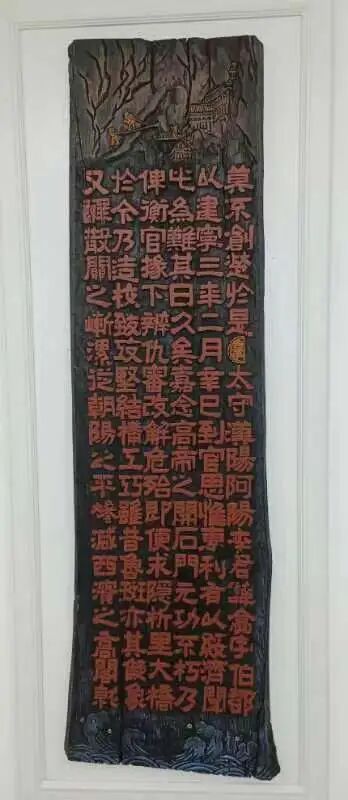 莫不創楚於是太守漢陽阿陽李君諱翕字伯都
以建寧三年二月辛巳到官思惟惠利有以綏濟聞
此為難其日久矣嘉念高帝之開石門元功不朽乃
俾衡官掾下辨仇審改解危殆即便求隱析里大橋
於今乃造校致攻堅結構工巧雖昔魯班亦其儗象
又醳散關之嶃漯從朝陽之平燣減西之高閣就